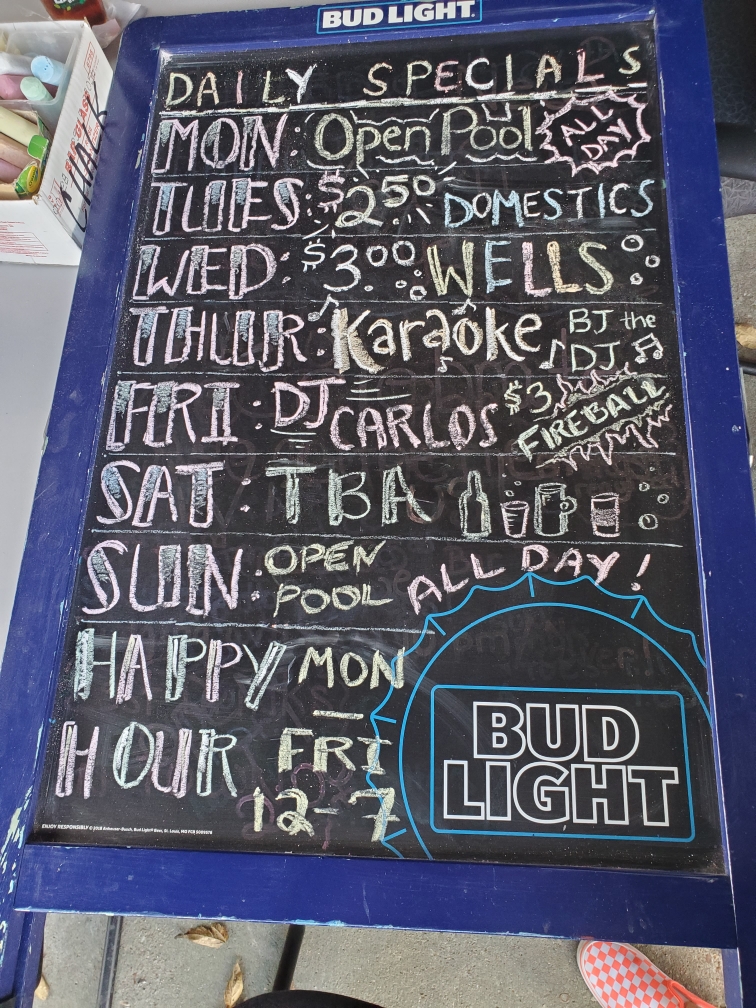 BUD LIGHT
DAILY SPECIALS
MON: Open Pool ALL DAY
TUES: $2.50 DOMESTICS
WED: $3.00 WELLS
THUR: Karaoke BJ the DJ
FRI: DJ CARLOS $3 FIREBALL
SAT: TBA
SUN: OPEN POOL ALL DAY!
HAPPY MON
-
HOUR FRI
12-7
BUD
LIGHT
CHALK